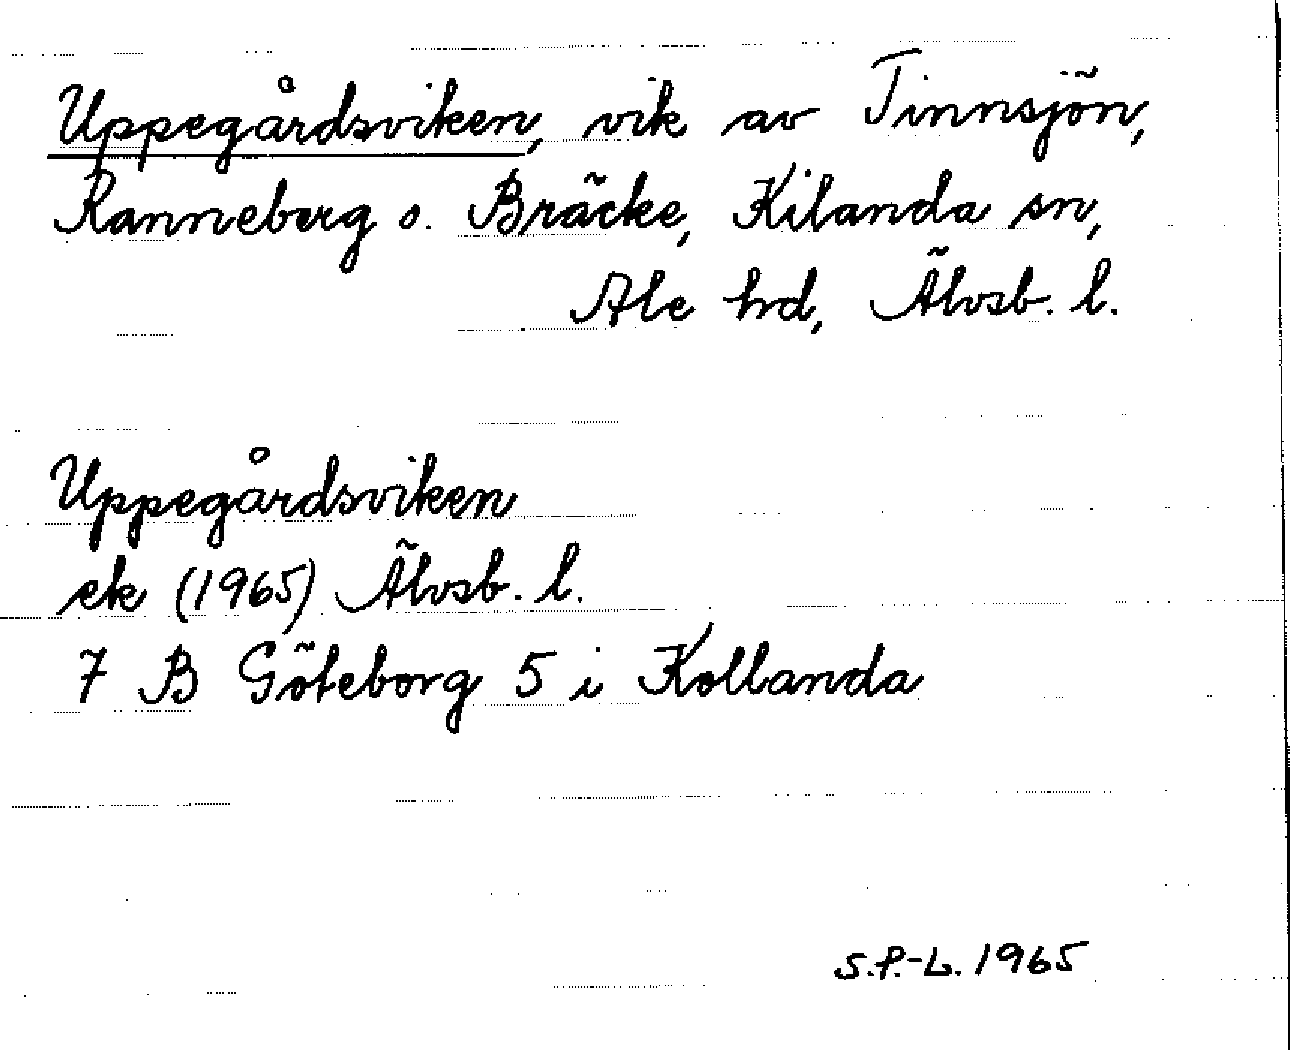 Uppegårdsviken, vik av Tinnsjön,
Ranneberg o. Bräcke, Kilanda sn,
Ale hd, Älvsb. l.
Uppegårdsviken
ek (1965) Älvsb. l.
7 B Göteborg 5 i Kollanda
S.P.-L. 1965